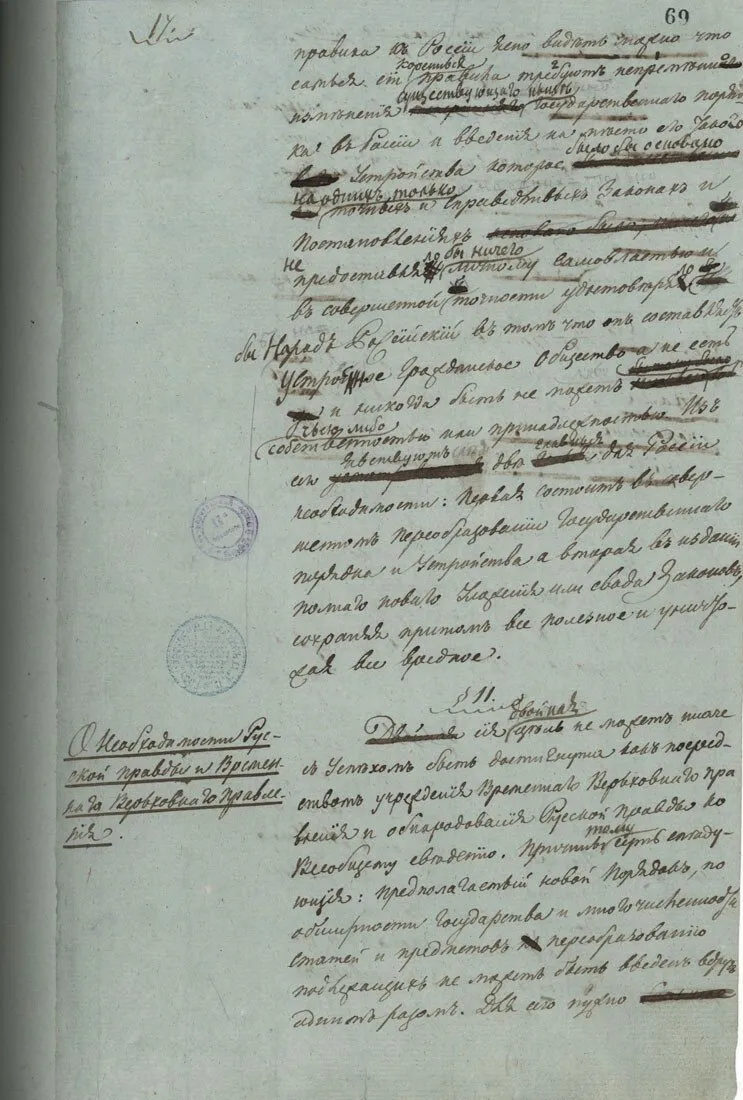 69
правила къ Россіи ясно видѣть можно что
коренныя
сіи правила требуютъ непремѣннаго
существующаго нынѣ
измѣненія Государственнаго поряд-
ка въ Россіи и введенія на мѣсто его такого
Устройства которое было бы основано
на однихъ только
точныхъ и справедливыхъ Законахъ и
Постановленіяхъ
не предоставляло бы ничего
личному самовластью и
въ совершенной точности удостовѣряло
бы Народъ Россійскій въ томъ что онъ составляетъ
устроенное Гражданское Общество а не есть
и никогда быть не можетъ
чьею либо
собственностью или принадлежностью. Изъ
сего явствуютъ двѣ главныя для Россіи
необходимости: Первая состоитъ въ совер-
шенномъ преобразованіи Государственнаго
порядка и Устройства а вторая въ изданіи
полнаго новаго Уложенія или свода Законовъ,
сохраняя притомъ все полезное и уничто-
жая все вредное.
§ 11.
О Необходимости Рус-
ской правды и Времен-
наго Верьховнаго Правле-
нія.
двойная
сія цѣль не можетъ иначе
съ Успѣхомъ быть достигнута какъ посред-
ствомъ учрежденія Временнаго Верьховнаго Прав
ленія и обнародованія Русской Правды ко
Всеобщему свѣденію. Причины тому суть слѣду-
ющія: Предполагаемый новой Порядокъ, по
обширности Государства и многочисленности
статей и предметовъ преобразованію
подлежащихъ не можетъ быть введенъ вдругъ
однимъ разомъ. Для сего нужно